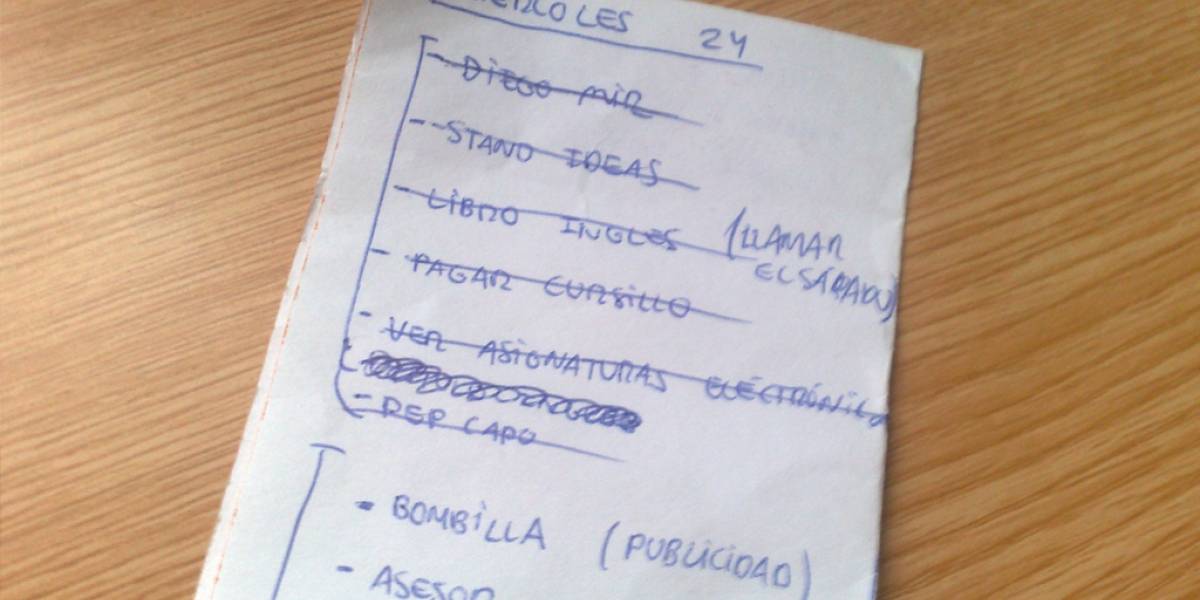 MIERCOLES 24
- DIEGO MIR
- STAND IDEAS
- LIBRO INGLES (LLAMAR
EL SÁBADO)
- PAGAR CURSILLO
- VER ASIGNATURAS ELECTRÓNICA
- REP CAPO
- BOMBILLA (PUBLICIDAD)
- ASESOR